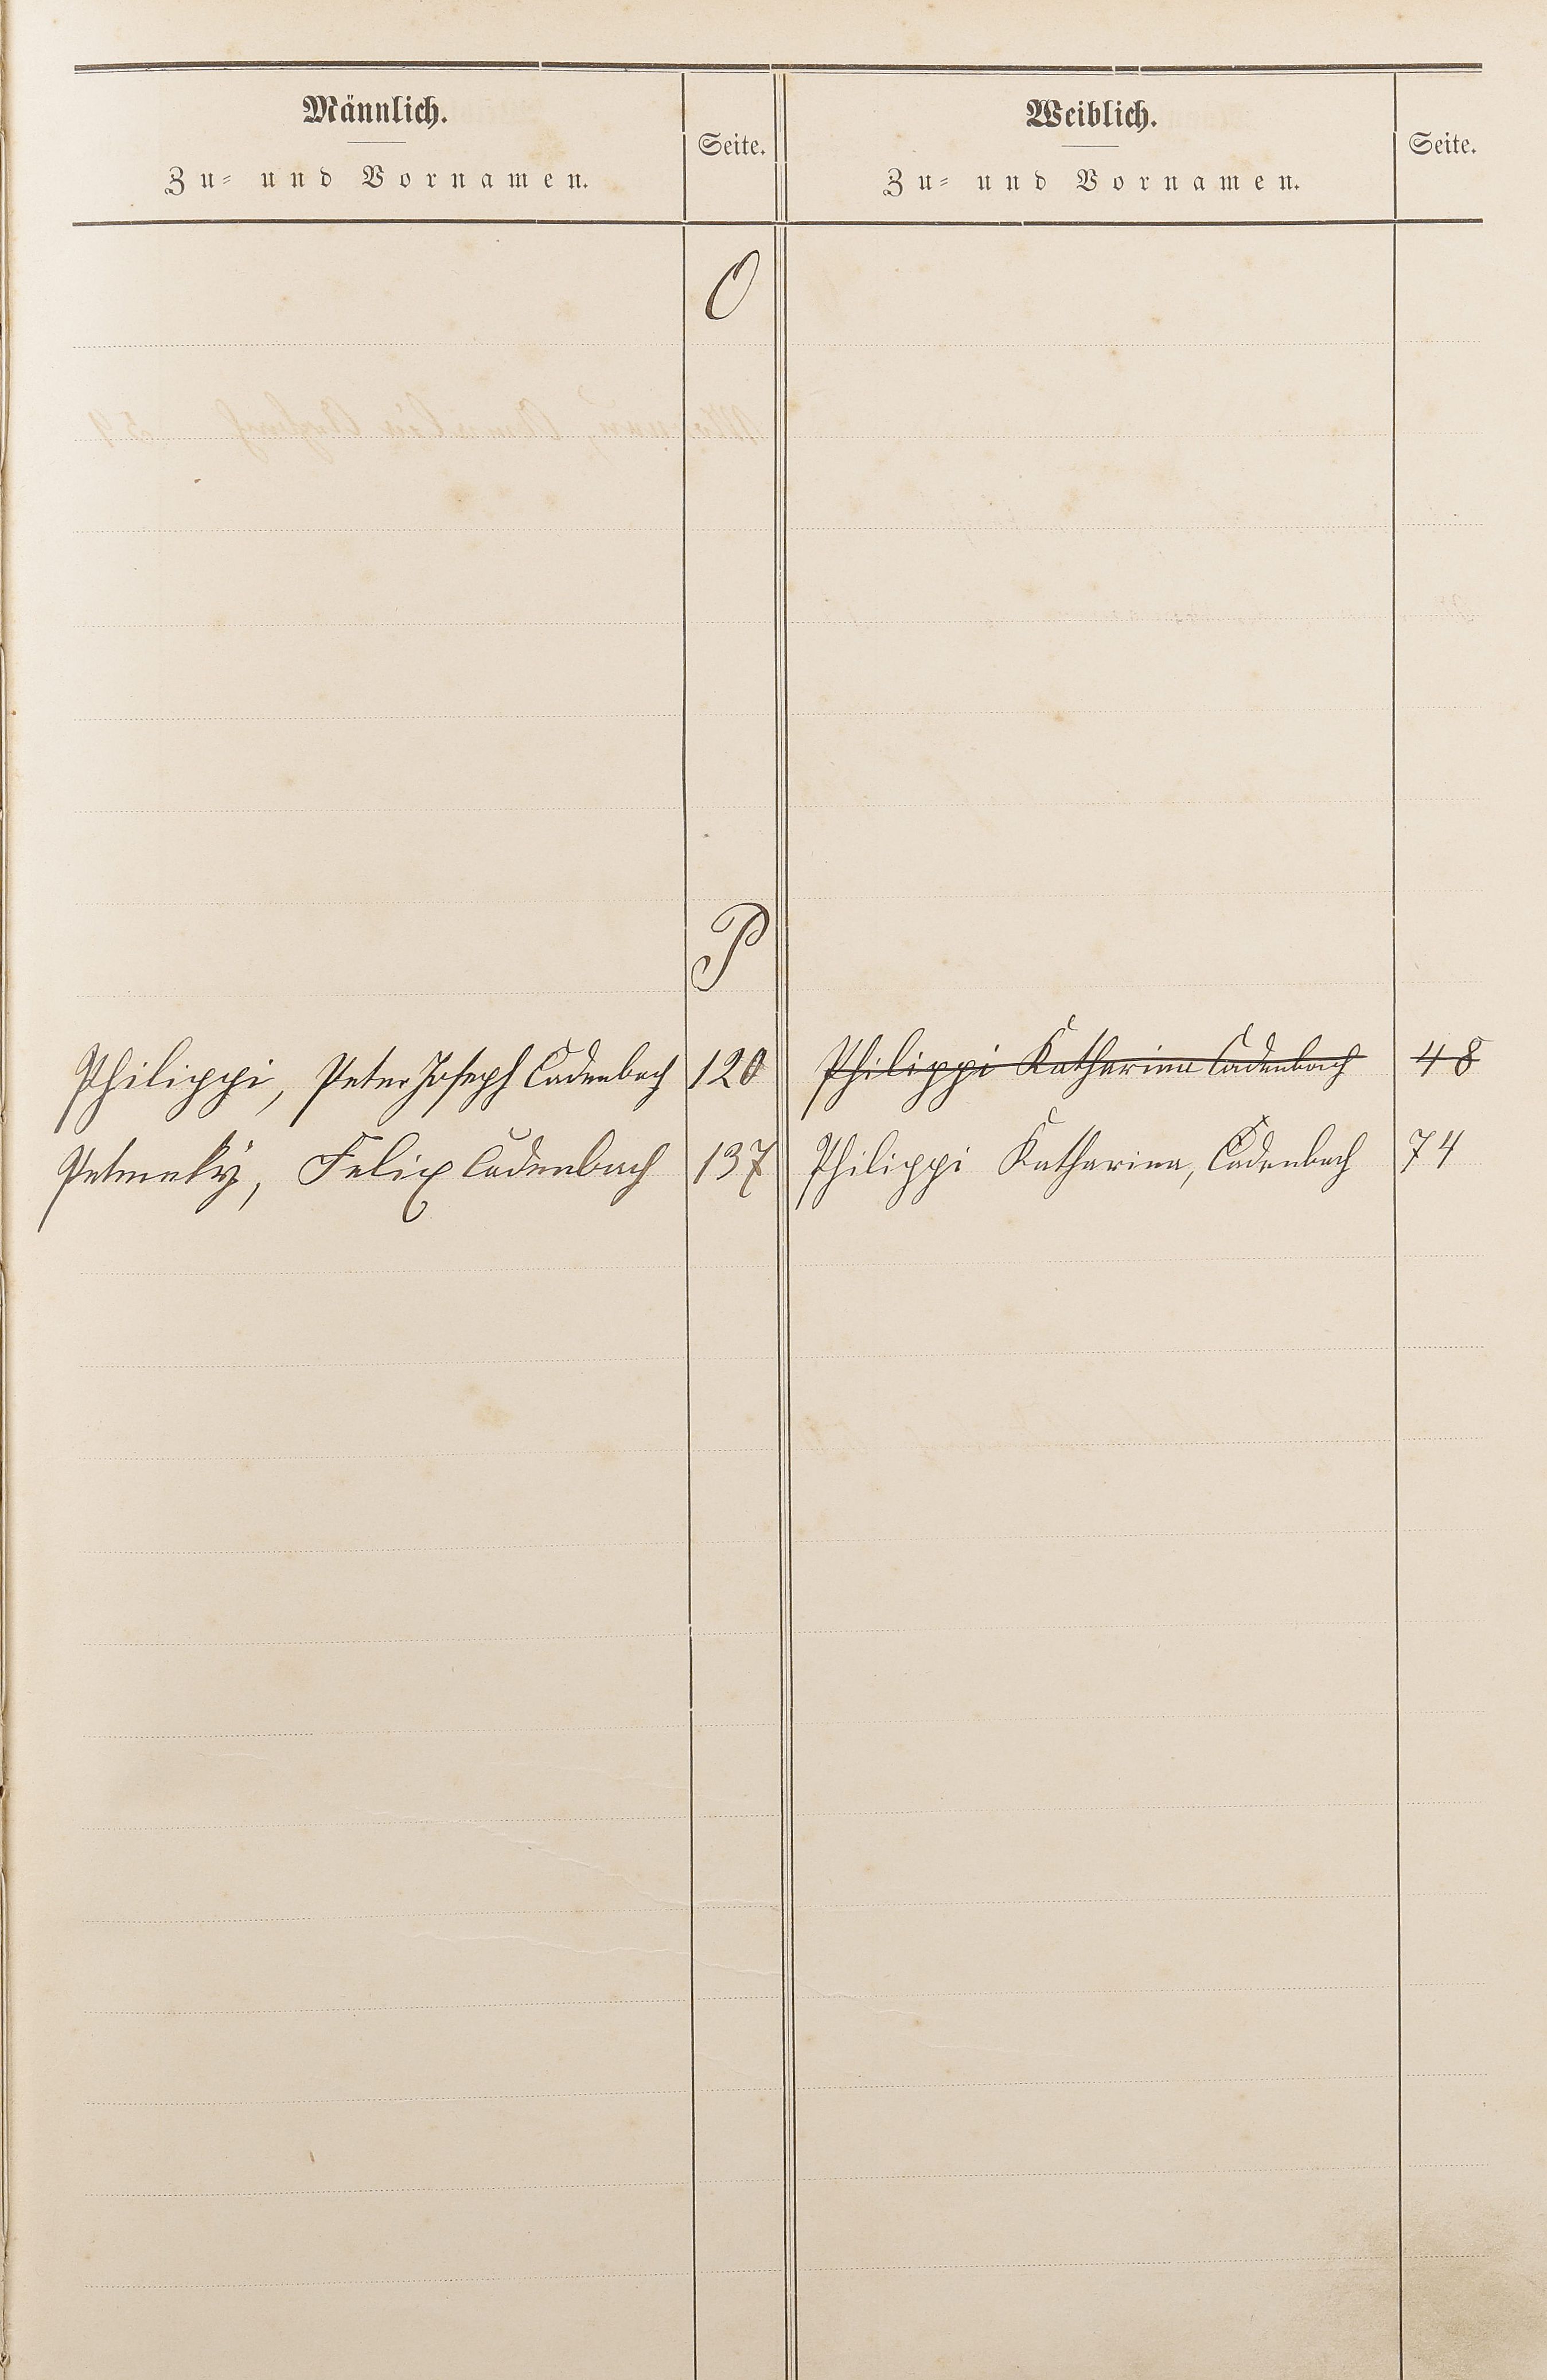 Männlich.
Zu- und Vornamen.
Seite.
Weiblich.
Zu- und Vornamen.
Seite.
O
P
Philippi, Peter Joseph Cadenbach 120
Philippi Katharina Cadenbach 48
Felix Cadenbach 137
Philippi Katharina, Cadenbach 74